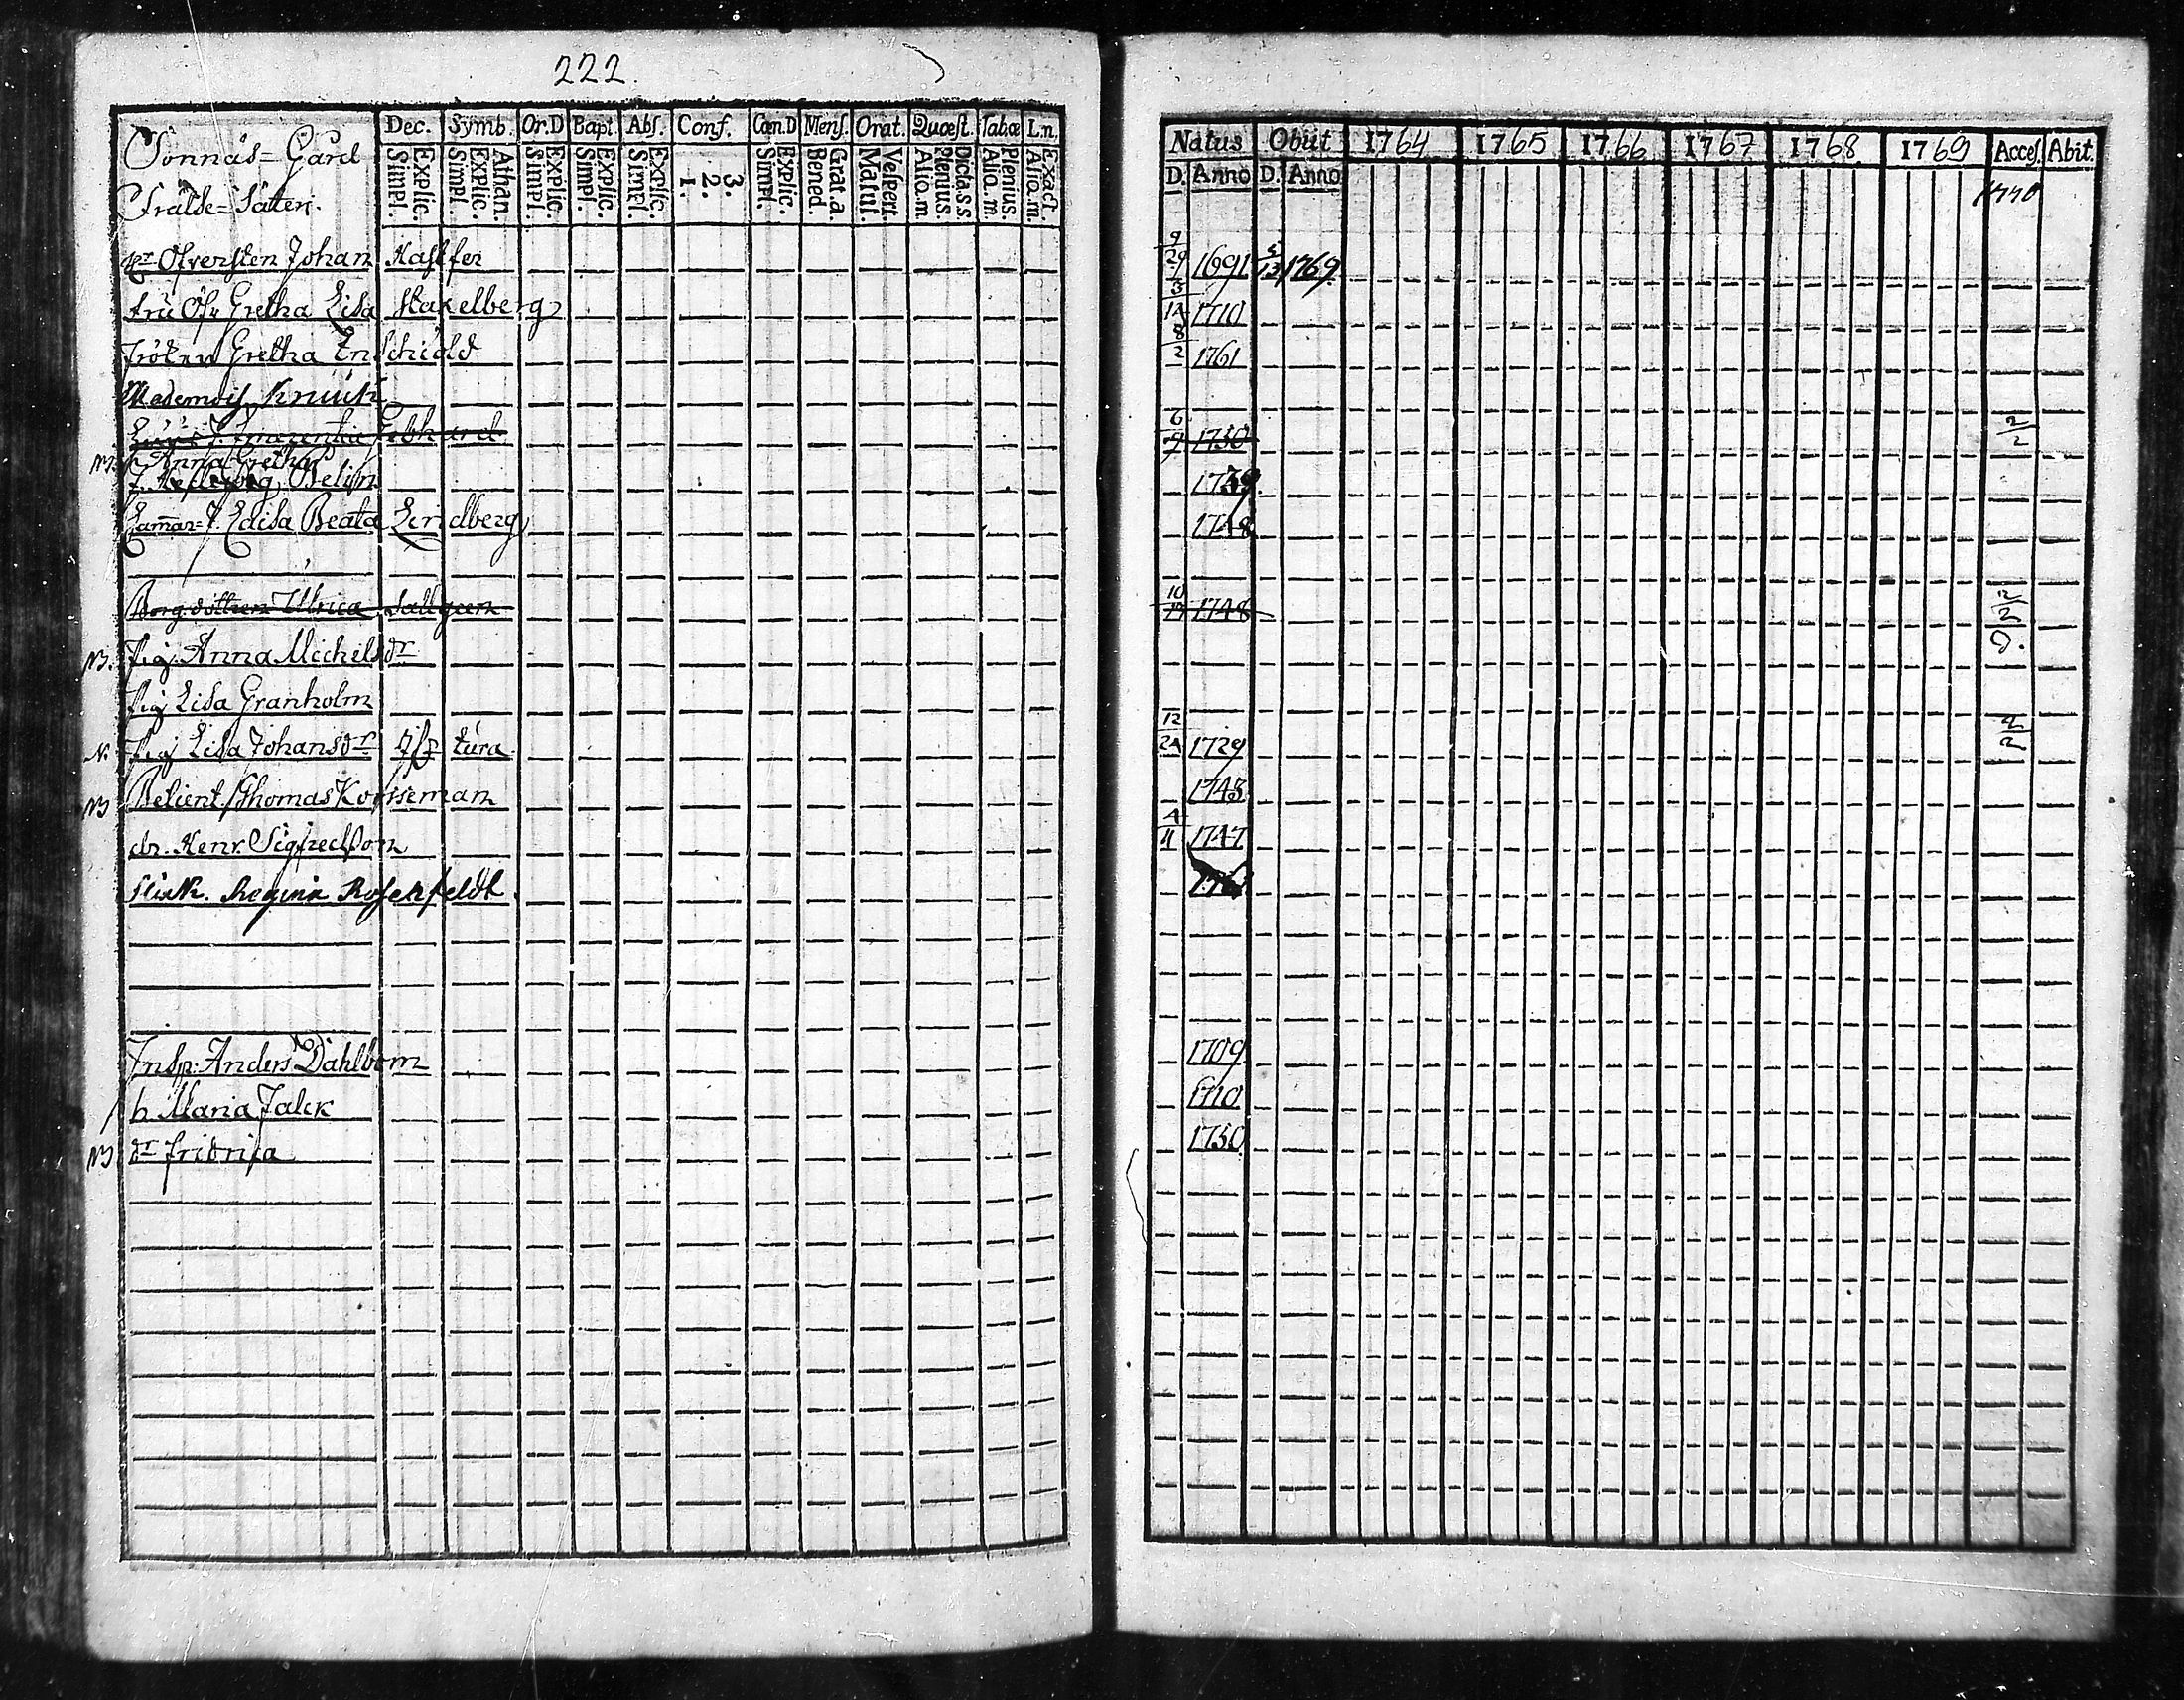 222.
Sonnäs=Gård
Fralse=Säteri.
Dec. Symb. Or.D Bapt. Abs. Conf. Cœn.D Mens. Orat. Quæst. Tab.œ I.n.
Simpl. Explic. Simpl. Explic. Athan. Simpl. Explic. Simpl. Explic. Simpl. Explic. 1. 2. 3. Simpl. Explic. Bened. Grat.a. Matut. Vespert. Alio.m Plenius. Dicta.s.s. Alio.m. Plenius. Alio.m. Exact.
Natus Obiit 1764 1765 1766 1767 1768 1769 Acces. Abit.
D. Anno D. Anno
1770
hr Öfversten Johan Hastfer 9/29 1691 5/13 1769
fru Öfv Gretha Lisa Stakelberg 3/12 1710
fröken Gretha Enschiöld 8/2 1761
Mademois. Knuuth
J. Emerentia Gebhard 6/9 1730 2/2
NB. Anna Gretha
J. Hedewig Belin 1739
Kamar=J. Edisa Beata Lindberg 1748
Ulrica Sallgeen 10/19 1748 2/2
NB. Pig. Anna Michelsdr
Pig Lisa Granholm
N. Pig Lisa Johansdr 12/24 1729 2/2
NB Betient Thomas Korseman 1743
dr. Henr. Sigfredsson 4/11 1747
flick. Regina Rosenfeldt
Insp: Anders Dahlbom 1709
h. Maria Falck 1710
NB dr fridrica 1750